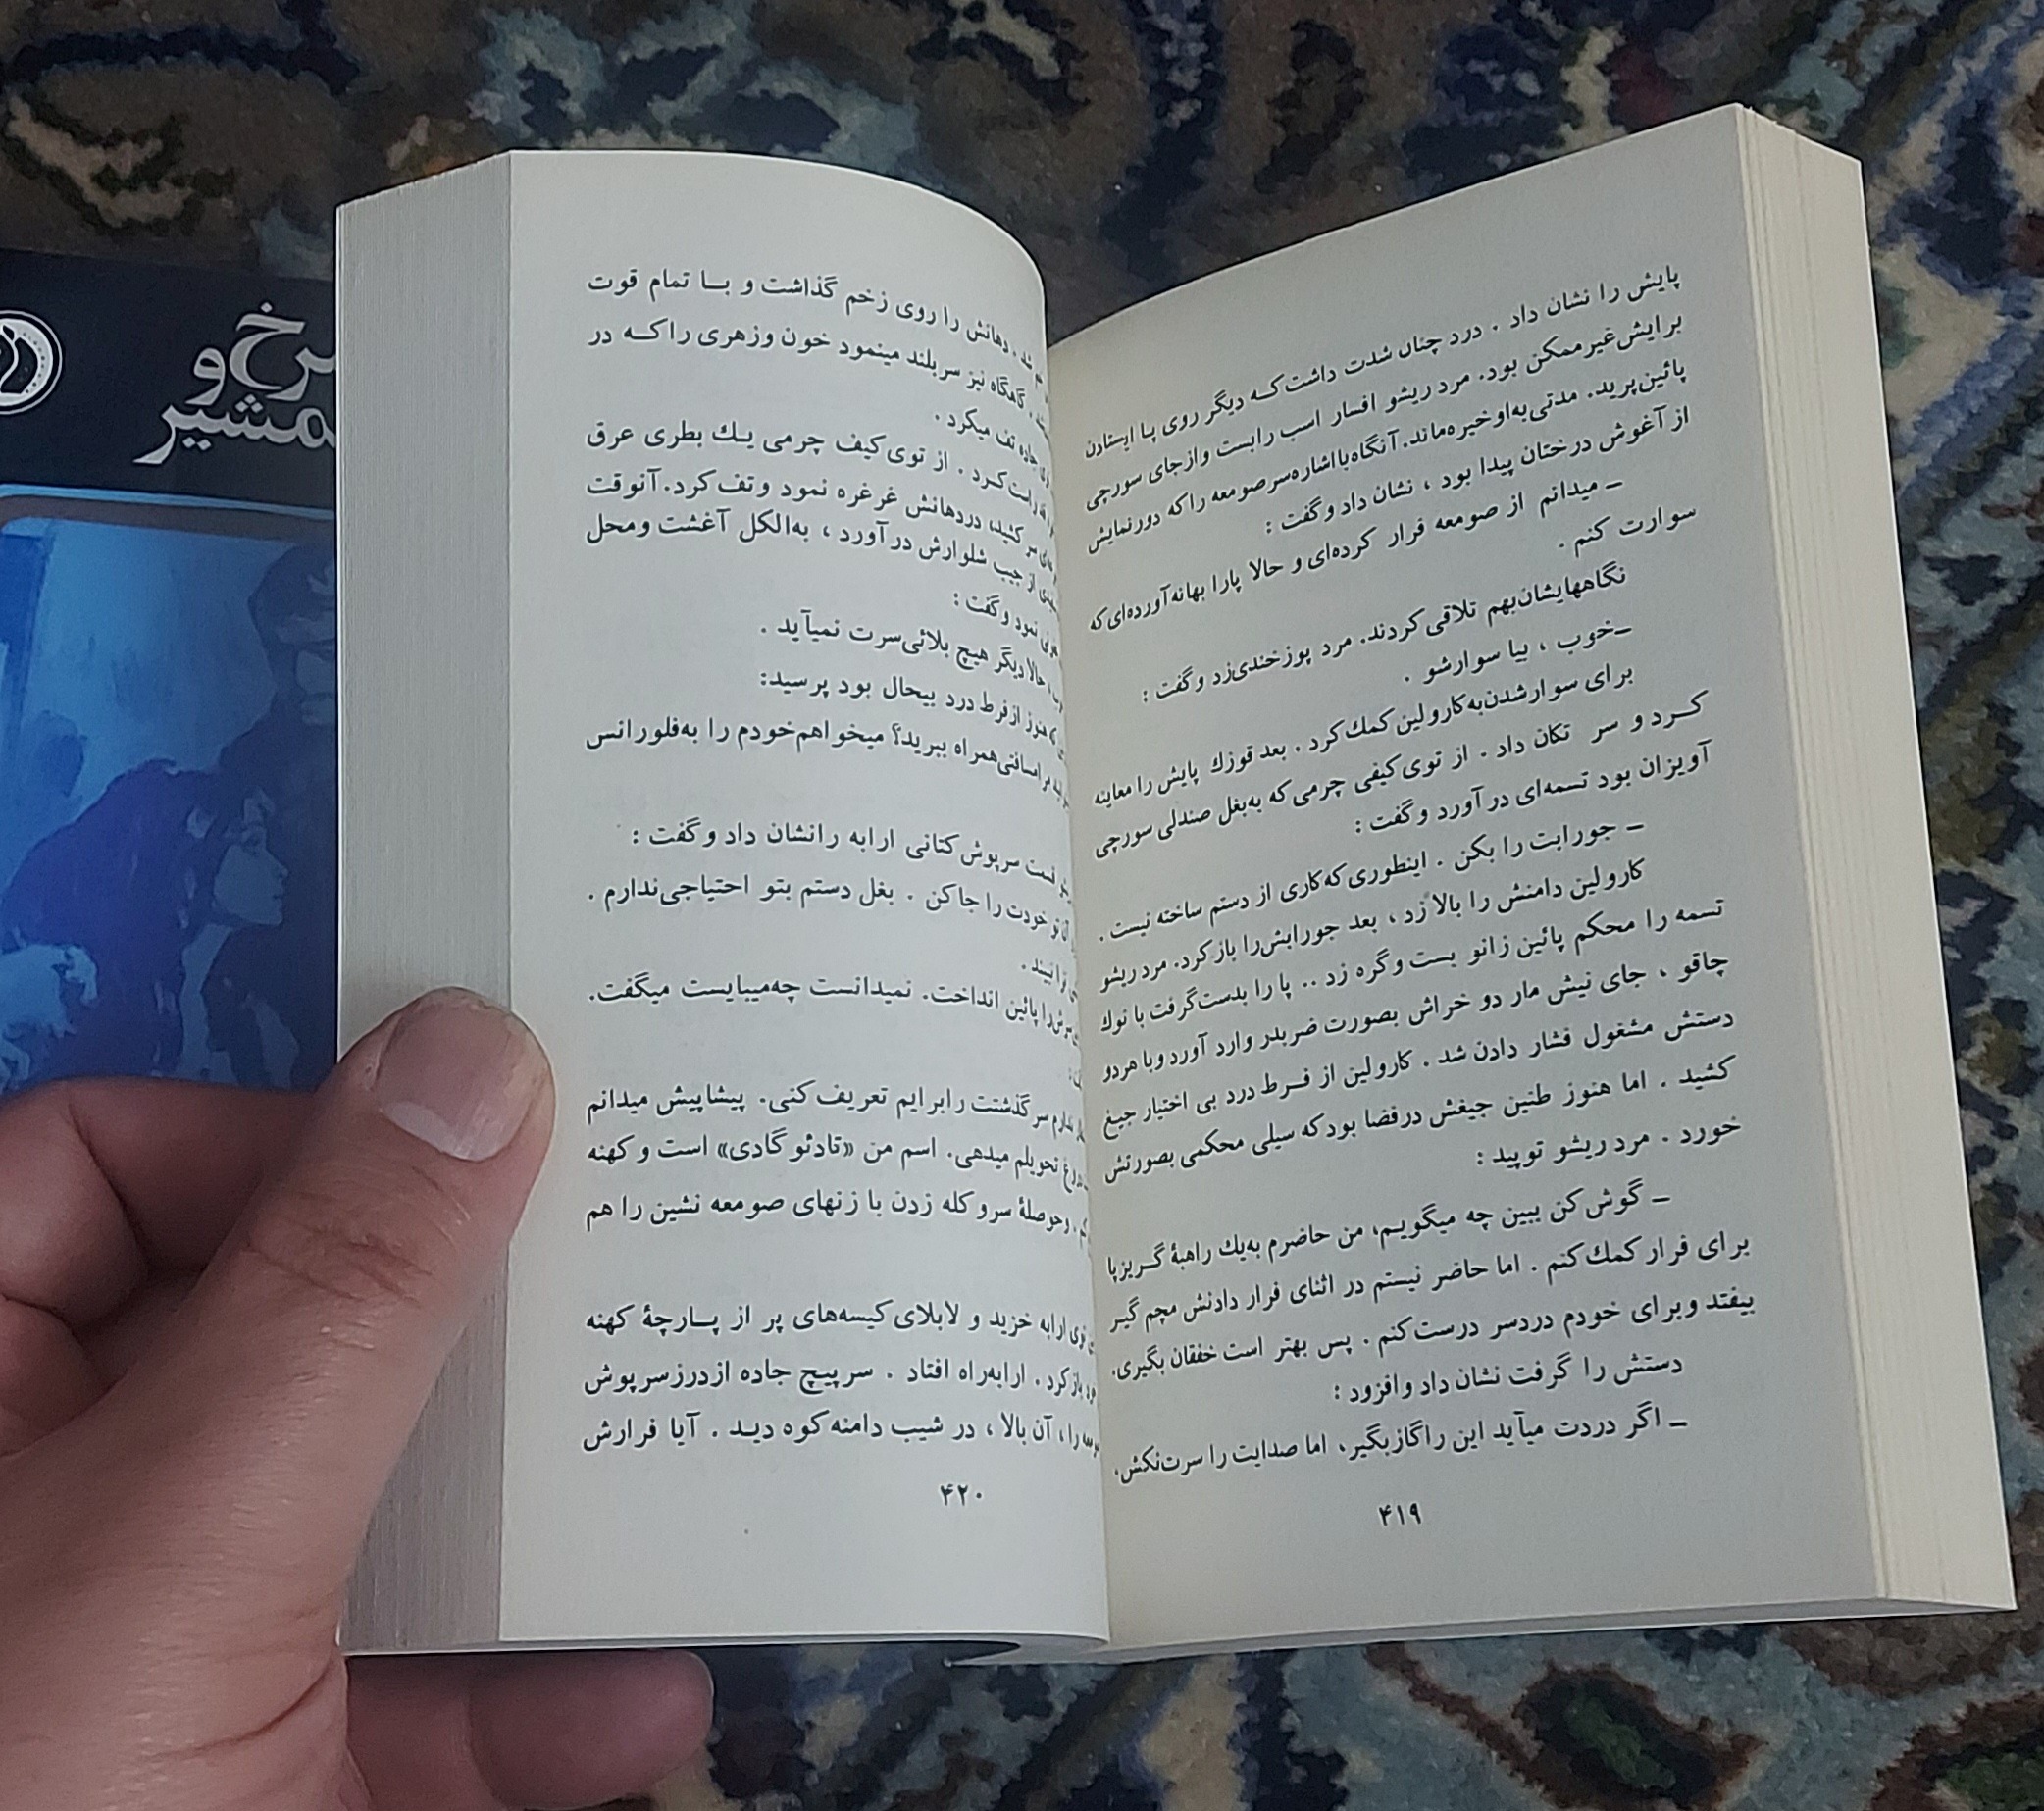 پایش را نشان داد . درد چنان شدت داشت‌که دیگر روی پا ایستادن
برایش‌غیرممکن بود. مرد ریشو افسار اسب رابست وازجای سورچی
پائین‌پرید. مدتی‌به‌اوخیره‌ماند.آنگاه‌بااشاره‌سرصومعه راکه دورنمایش
ازآغوش درختان پیدا بود ، نشان داد وگفت :
ــ میدانم از صومعه فرار کرده‌ای و حالا پارا بهانه‌آورده‌ای‌که
سوارت کنم .
نگاههایشان‌بهم تلاقی‌کردند. مرد پوزخندی‌زد وگفت :
ــ‌خوب ، بیا سوارشو .
برای سوارشدن‌به‌کارولین‌کمك‌کرد . بعد قوزك پایش را معاینه
کـرد و سر تکان داد . از توی‌کیفی چرمی‌که به‌بغل صندلی سورچی
آویزان بود تسمه‌ای درآورد وگفت :
ــ جورابت را بکن . اینطوری‌که‌کاری از دستم ساخته نیست .
کارولین دامنش را بالا زد ، بعد جورابش‌را بازکرد. مردریشو
تسمه را محکم پائین زانو بست وگره زد .. پا را بدست‌گرفت با نوك
چاقو ، جای نیش مار دو خراش بصورت ضربدر وارد آورد وبا هردو
دستش مشغول فشار دادن شد . کارولین از فـرط درد بی اختیار جیغ
کشید . اما هنوز طنین جیغش درفضا بودکه سیلی محکمی بصورتش
خورد . مرد ریشو توپید :
ــ گوش‌کن ببین چه میگویـم، من حاضرم به‌یك راهبهٔ گـریزپا
برای فرار کمك‌کنم . اما حاضر نیستم در اثنای فرار دادنش مچم گیـر
بیفتد وبرای خودم دردسر درست‌کنم . پس بهتر است خفقان بگیری.
دستش را گرفت نشان داد وافزود :
ــ اگر دردت میآید این راگازبگیر، اما صدایت را سرت‌نکش،
۴۱۹
شد . دهانش را روی زخم گذاشت و بــا تمام قوت
گاهگاه نیز سربلند مینمود خون وزهری راکــه در
جاده تف میکرد .
راست‌کـرد . از توی‌کیف چرمی یـك بطری عرق
سر کشید، دردهانش غرغره نمود وتف‌کرد.آنوقت
از جیب شلوارش درآورد ، به‌الکل آغشت ومحل
نمود وگفت :
حالادیگر هیچ بلائی‌سرت نمیآید .
هنوز ازفرط درد بیحال بود پرسید:
مرامسافتی‌همراه ببرید؟ میخواهم‌خودم را به‌فلورانس
قسمت سرپوش‌کتانی ارابه رانشان داد وگفت :
تو خودت را جاکن . بغل دستم بتو احتیاجی‌ندارم .
ترا نبیند .
سرش‌را پائین انداخت. نمیدانست چه‌میبایست میگفت.
ندارم سرگذشتت رابرایم تعریف‌کنی. پیشاپیش میدانم
تحویلم میدهی. اسم من «تادئوگادی» است و کهنه
وحوصلهٔ سروکله زدن با زنهای صومعه نشین را هم
توی ارابه خزید و لابلای‌کیسه‌های پر از پــارچهٔ کهنه
بازکرد . ارابه‌راه افتاد . سرپیچ جاده ازدرزسرپوش
را ، آن بالا ، در شیب دامنه‌کوه دیـد . آیا فرارش
۴۲۰